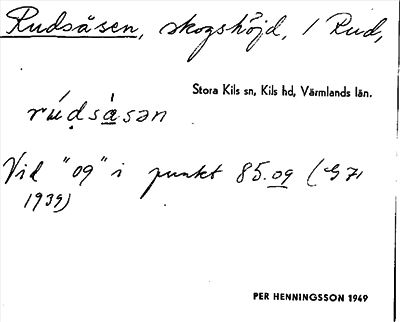 Rudsåsen, skogshöjd, / Rud,
Stora Kils sn, Kils hd, Värmlands län.
rúdsåsən
Vid "09" i punkt 85.09 (G 71
1939)
PER HENNINGSSON 1949